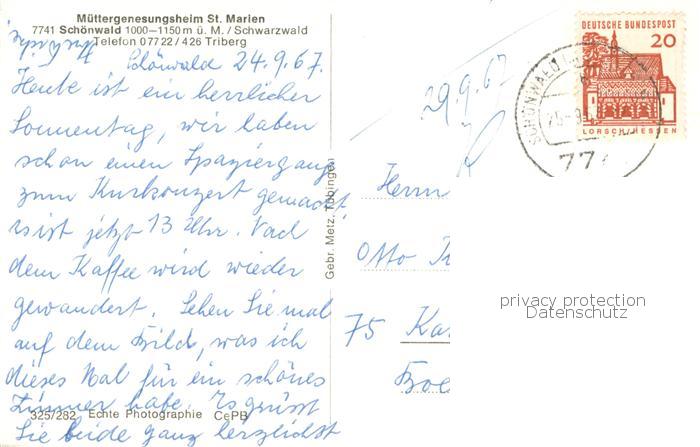 Müttergenesungsheim St. Marien
7741 Schönwald 1000—1150 m ü. M. / Schwarzwald
Telefon 07722 / 426 Triberg
Schönwald 24.9.67.
Heute ist ein herrlicher
Sonnentag, wir haben
schon einen Spaziergang
zum Kurkonzert gemacht.
es ist jetzt 13 Uhr. Nach
dem Kaffee wird wieder
gewandert. Sehen Sie mal
auf dem Bild, was ich
dieses Mal für ein schönes
Zimmer habe. Es grüsst
Sie beide ganz herzlichst
325/282 Echte Photographie CePB
Gebr. Metz, Tübingen
29.9.67
DEUTSCHE BUNDESPOST
20
LORSCH/HESSEN
SCHÖNWALD
77
Herrn
Otto
75 Ka
privacy protection
Datenschutz